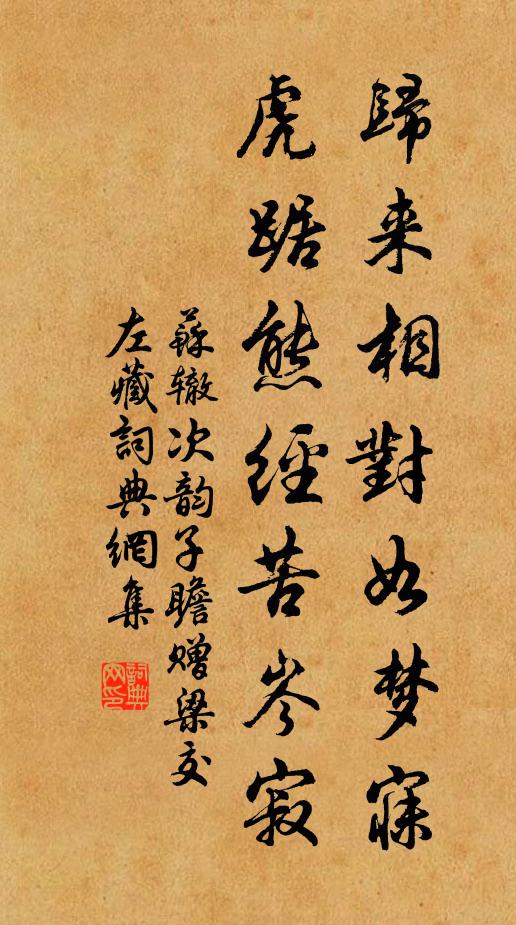 歸来相對如梦寐
虎踞熊經苦岑寂
蘇辙次韵子瞻赠梁交
左藏詞典網集
詞典网印